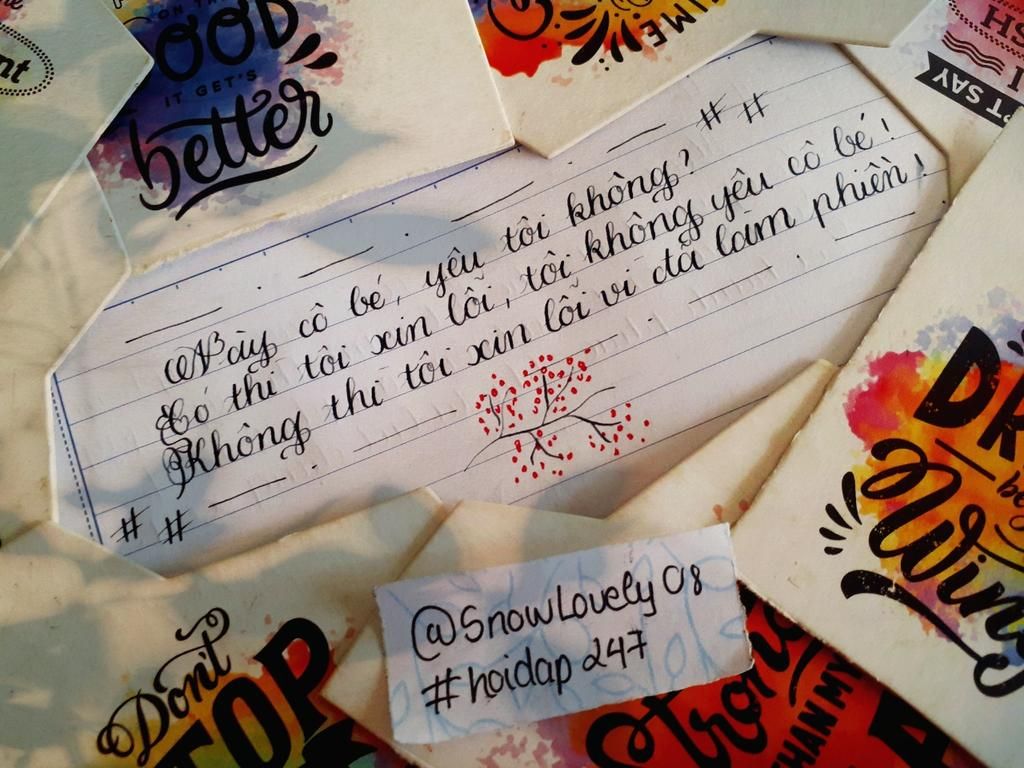 OOD
IT GET'S
better
TIME!
# #
Này cô bé, yêu tôi không?
Có thì tôi xin lỗi, tôi không yêu cô bé!
Không thì tôi xin lỗi vì đã làm phiền!
# #
@SnowLovely08
#hoidap247
Don't
TOP
THAN MY
'T SAY